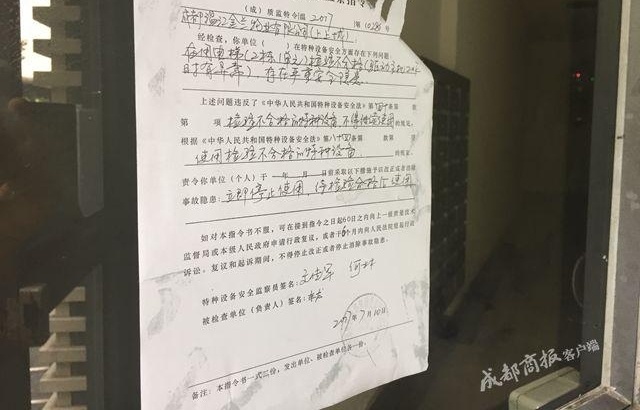 (成)质监特令温[2017]
成都温江金兰物业有限公司(上上城):
经检查,你单位( )在特种设备安全方面存在下列问题:
在用电梯(2栋1单元)检验不合格
时有异常),存在严重安全隐患
上述问题违反了《中华人民共和国特种设备安全法》第四十条 款
第 项 检验不合格的特种设备,不得继续使用 的规定。
根据《中华人民共和国特种设备安全法》第八十四条 款 项
使用检验不合格的特种设备 的规定,
责令你单位(个人)于 一 年 一 月 一 日前采取以下措施予以改正或者消除
事故隐患:立即停止使用,待检验合格后使用
如对本指令书不服,可在接到指令之日起60日之内向上一级质量技术
监督局或本级人民政府申请行政复议,或者于6个月内向人民法院提起行政
诉讼。复议和起诉期间,不得停止改正或者停止消除事故隐患。
特种设备安全监察员签名:
被检查单位(负责人)签名:
2017年7月10日
备注:本指令书一式二份,发出单位、被检查单位各一份。
成都商报客户端